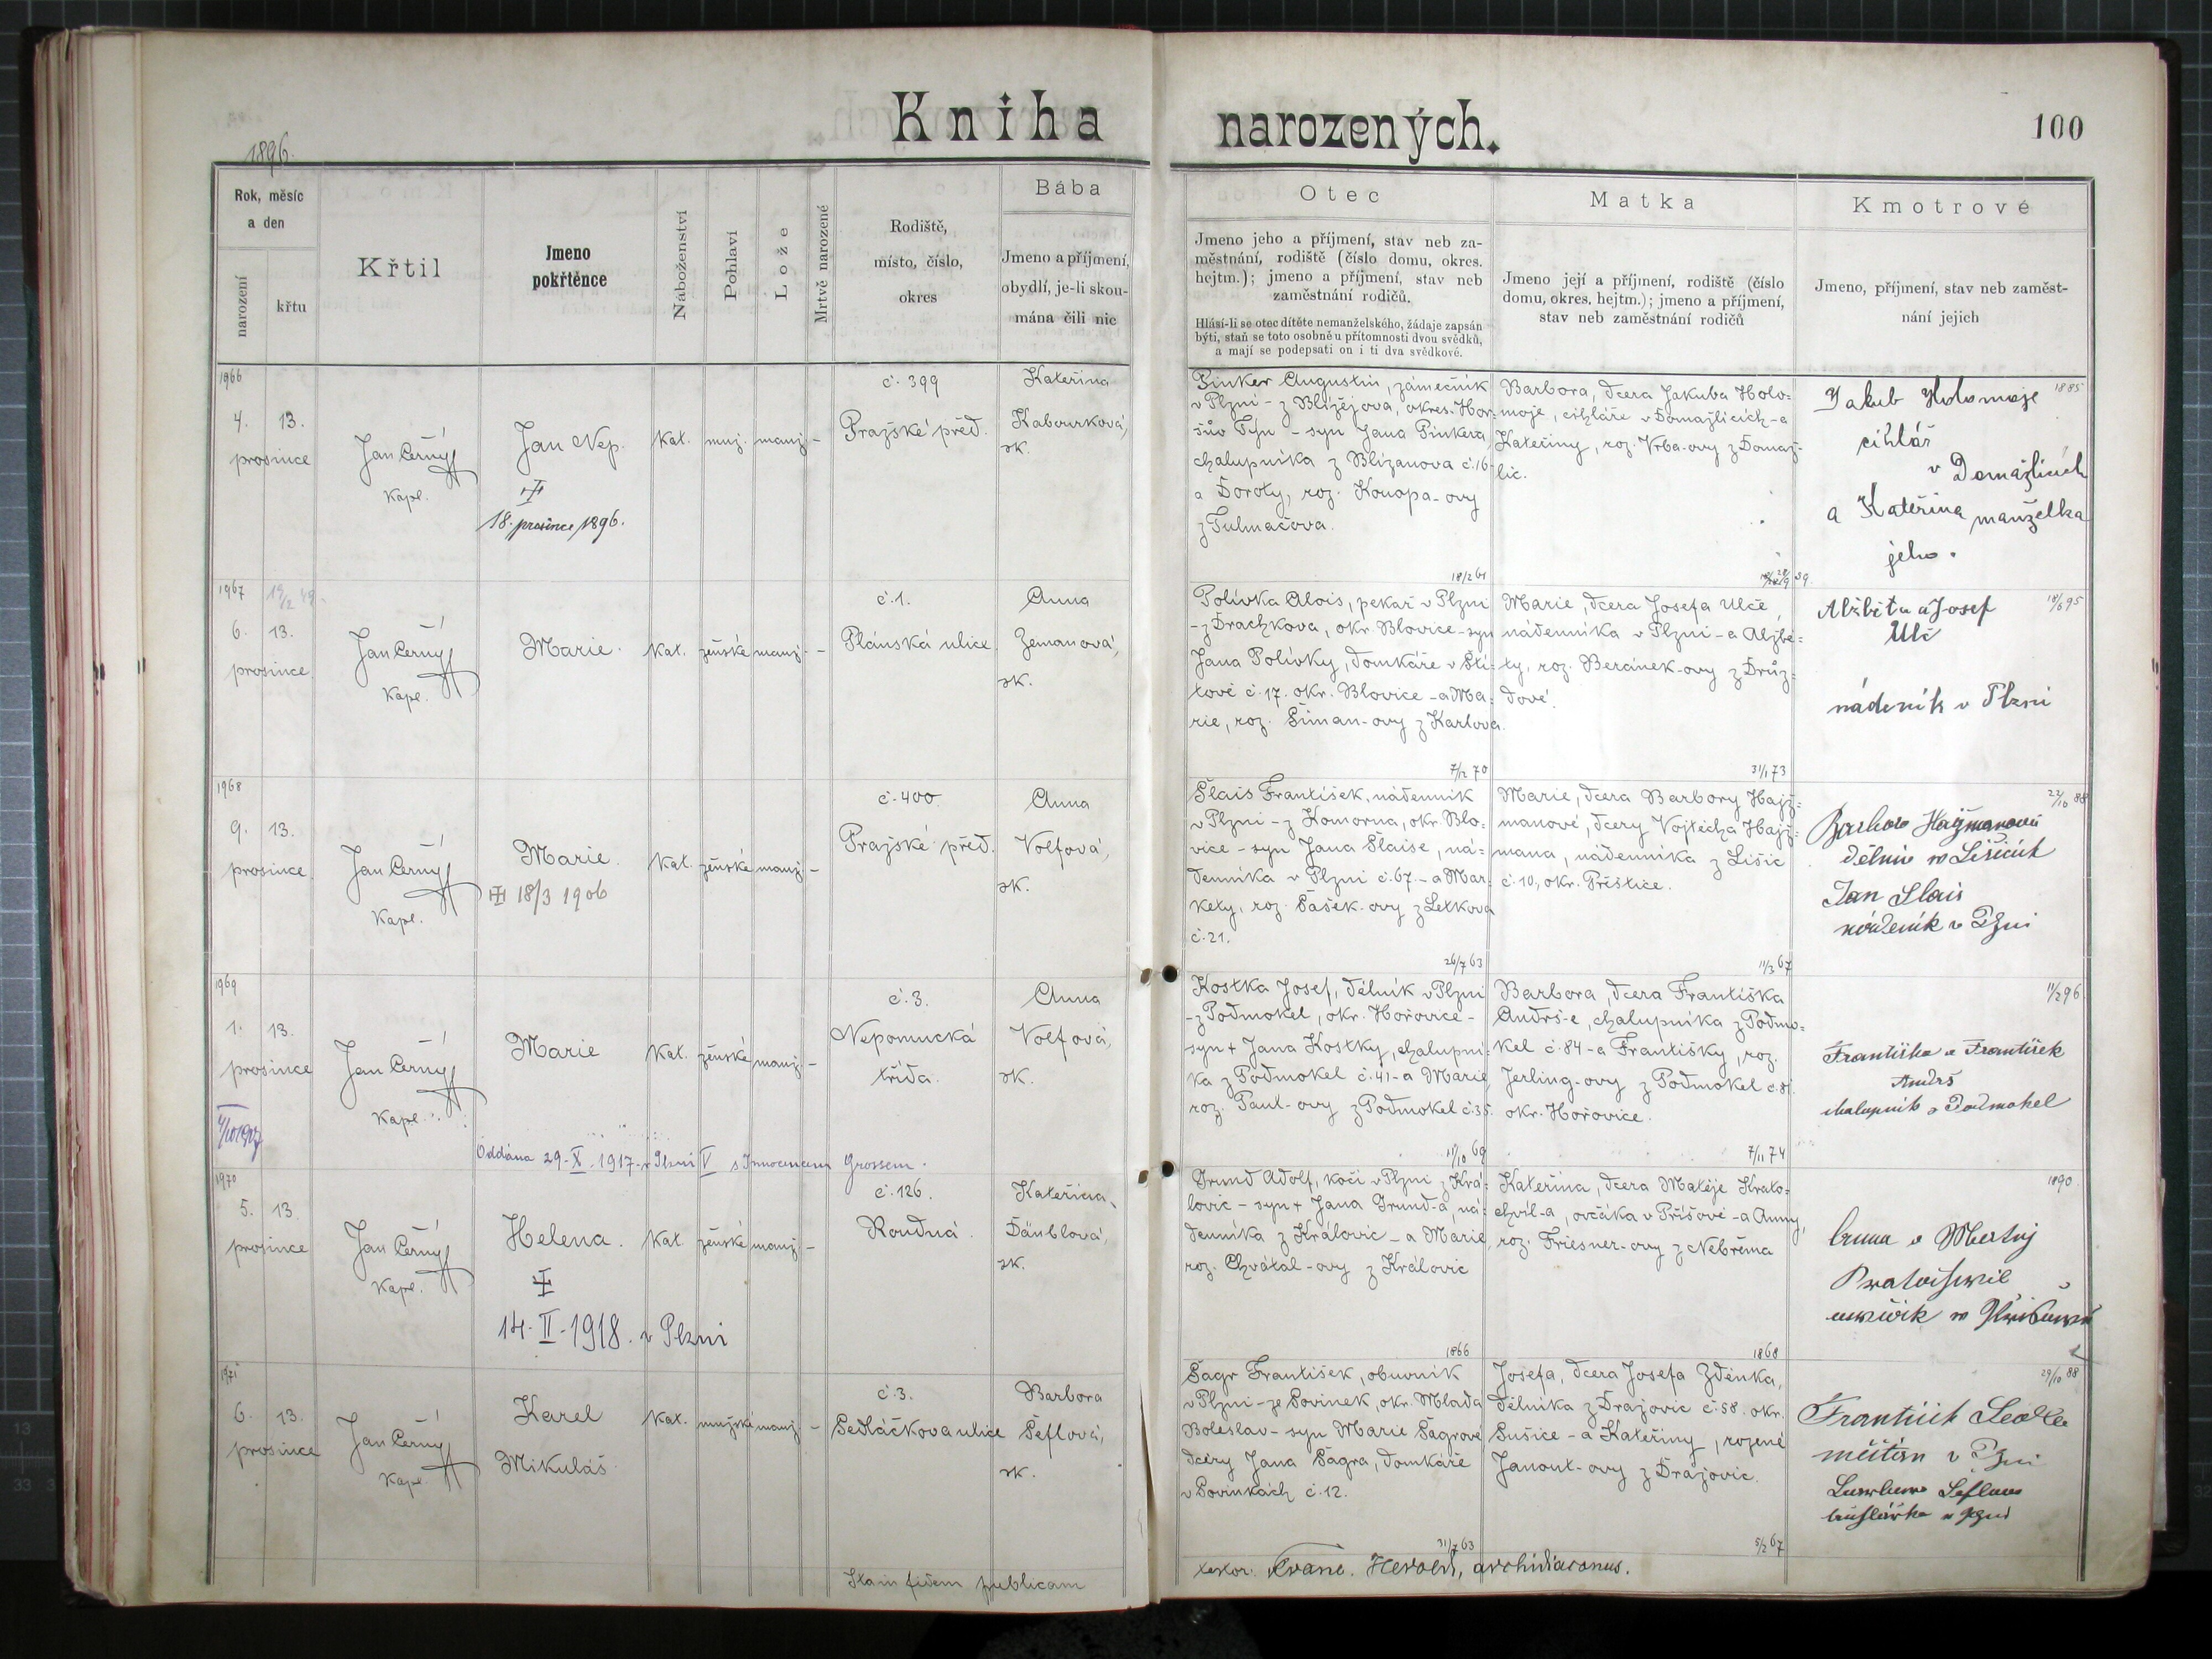 Kniha narozených.
100
1896.
Rok, měsíc
a den
narození
křtu
Křtil
Jmeno
pokřtěnce
Náboženství
Pohlaví
Lože
Mrtvě narozené
Rodiště,
místo, číslo,
okres
Bába
Jmeno a příjmení,
obydlí, je-li skou-
mána čili nic
Otec
Jmeno jeho a příjmení, stav neb za-
městnání, rodiště (číslo domu, okres.
hejtm.); jmeno a příjmení, stav neb
zaměstnání rodičů.
Hlásí-li se otec dítěte nemanželského, žádaje zapsán
býti, staň se toto osobně u přítomnosti dvou svědků,
a mají se podepsati on i ti dva svědkové.
Matka
Jmeno její a příjmení, rodiště (číslo
domu, okres. hejtm.); jmeno a příjmení,
stav neb zaměstnání rodičů
Kmotrové
Jmeno, příjmení, stav neb zaměst-
nání jejich
1966
4. 13.
prosince
Jan Černý
Kapl.
Jan Nep.
18. prosince 1896.
Kat. muž. manž. -
č. 399
Pražské před.
Kateřina
Kabourková,
zk.
Pinker Augustin, zámečník
v Plzni - z Blížejova, okres. Hor-
šův Týn - syn Jana Pinkera,
chalupníka z Blížanova č. 16
a Doroty, roz. Konopa-ovy
z Tulmačova.
18/2 61
Barbora, dcera Jakuba Holo-
moje, cihláře v Domažlicích - a
Kateřiny, roz. Vrba-ovy z Domaž-
lic.
1885
Jakub Holomoje
cihlář
v Domažlicích
a Kateřina manželka
jeho.
1967
6. 13.
prosince
Jan Černý
Kapl.
Marie.
Kat. ženské manž. -
č. 1.
Plánská ulice
Anna
Zemanová,
zk.
Polívka Alois, pekař v Plzni
- z Drachkova, okr. Blovice - syn
Jana Polívky, domkáře v Ští-
tově č. 17. okr. Blovice - a Ma-
rie, roz. Šiman-ovy z Karlova.
7/12 70
Marie, dcera Josefa Ulče,
nádenníka v Plzni - a Alžbě-
ty, roz. Beránek-ovy z Drůz-
dové.
31/1 73
18/6 95
Alžběta a Josef
Ulč
nádeník v Plzni
1968
9. 13.
prosince
Jan Černý
Kapl.
Marie.
18/3 1906
Kat. ženské manž. -
č. 400
Pražské před.
Anna
Volfová,
zk.
Šlais František, nádenník
v Plzni - z Komorna, okr. Blo-
vice - syn Jana Šlaise, ná-
denníka v Plzni č. 67. - a Mar-
kety, roz. Sašek-ovy z Letkova
č. 21.
26/7 63
Marie, dcera Barbory Hajž-
manové, dcery Vojtěcha Hajž-
mana, nádenníka z Lišic
č. 10, okr. Přeštice.
11/3 67
22/10 88
Barbora Hajžmanová
dělnice v Lišicích
Jan Šlais
nádeník v Plzni
1969
1. 13.
prosince
Jan Černý
Kapl.
Marie
Kat. ženské manž. -
č. 3.
Nepomucká
třída.
Anna
Volfová,
zk.
Oddána 29. X. 1917. v Plzni V s Innocencem Grossem.
Kostka Josef, dělník v Plzni
- z Podmokel, okr. Hořovice -
syn + Jana Kostky, chalupní-
ka z Podmokel č. 41 - a Marie
roz. Paul-ovy z Podmokel č. 35.
15/10 69
Barbora, dcera Františka
Andrš-e, chalupníka z Podmo-
kel č. 84 - a Františky, roz.
Jerling-ovy z Podmokel č. 81.
okr. Hořovice.
7/11 74
11/2 96
Františka a František
Andrš
chalupník z Podmokel
1970
5. 13.
prosince
Jan Černý
Kapl.
Helena.
14. II. 1918. v Plzni
Kat. ženské manž. -
č. 126.
Roudná
Kateřina
Däublová,
zk.
Grund Adolf, kočí v Plzni z Krá-
lovic - syn + Jana Grund-a, ná-
denníka z Královic - a Marie,
roz. Chvátal-ovy z Královic
1866
Kateřina, dcera Matěje Krato-
chvíl-a, ovčáka v Příšově - a Anny,
roz. Friesner-ovy z Nebřema
1868
1890
1971
6. 13.
prosince
Jan Černý
Kapl.
Karel
Mikuláš
Kat. mužské manž. -
č. 3.
Sedláčkova ulice
Barbora
Šeflová,
zk.
Šagr František, obuvník
v Plzni - ze Sovinek, okr. Mladá
Boleslav - syn Marie Šagrové
dcery Jana Šagra, domkáře
v Sovinkách č. 12.
31/7 63
Josefa, dcera Josefa Zdenka,
dělníka z Dražovic č. 58. okr.
Sušice - a Kateřiny, rozené
Janout-ovy z Dražovic.
5/2 67
29/10 88
František Sedlá
měšťan v Plzni
Stain fidem publicam
testor. Franc. Herold, archidiaconus.